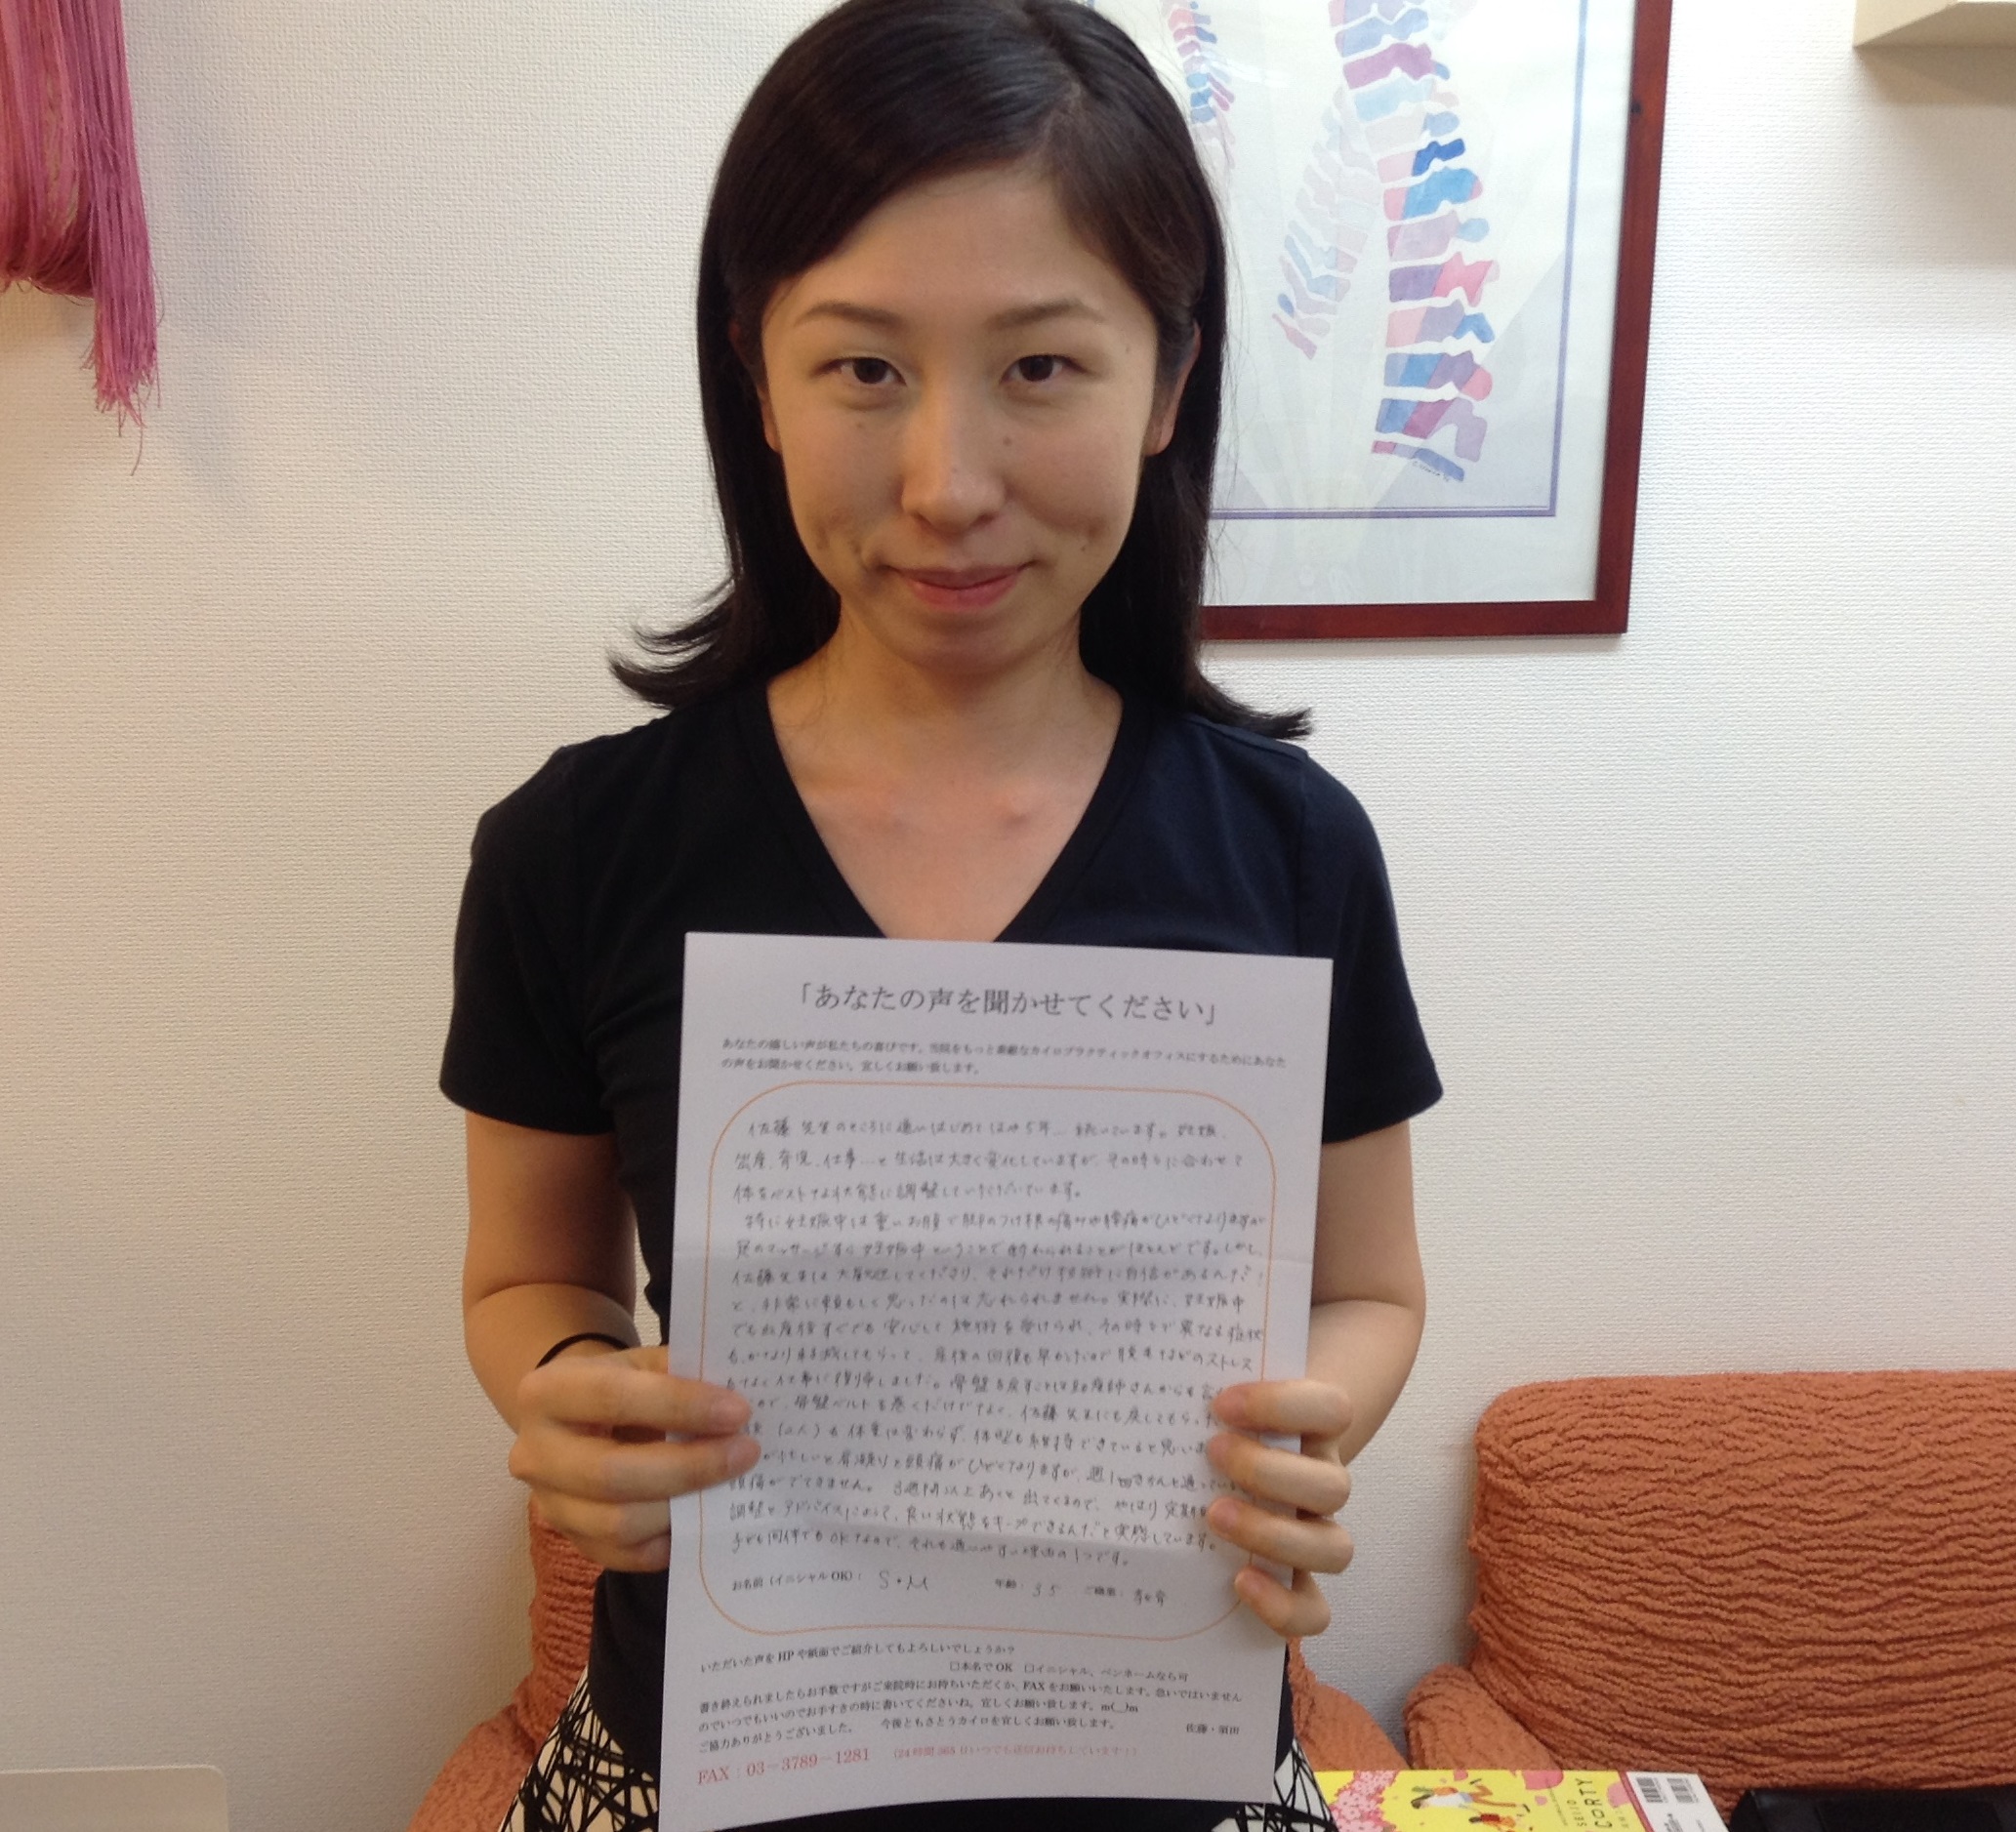 「あなたの声を聞かせてください」
あなたの嬉しい声が私たちの喜びです。当院をもっと素敵なカイロプラクティックオフィスにするためにあなた
の声をお聞かせください。宜しくお願い致します。
佐藤先生のところに通いはじめてはや5年… 続いています。妊娠、
出産、育児、仕事…と生活は大きく変化していますが、その時々に合わせて
体をベストな状態に調整していただいています。
特に妊娠中は重いお腹で脚のつけ根の痛みや腰痛がひどくなりますが
足のマッサージすら妊娠中ということで断わられることがほとんどです。しかし、
佐藤先生は大歓迎してくださり、それだけ技術に自信があるんだ!
と、非常に頼もしく思ったのは忘れられません。実際に、妊娠中
でも出産後すぐでも安心して施術を受けられ、その時々で異なる症状
も、かなり軽減してもらって、産後の回復も早かったので腰痛などのストレス
もなく仕事に復帰しました。骨盤を戻すことは助産師さんからも
ので、骨盤ベルトを巻くだけでなく、佐藤先生にも戻してもらった
(2人)も体重は変わらず、体型も維持できていると思いま
が忙しいと肩凝りと頭痛がひどくなりますが、週1回きちんと通っている
頭痛がでてきません。3週間以上あくと出てくるので、やはり定期
調整とアドバイスによって、良い状態をキープできるんだと実感しています。
子ども同伴でもOKなので、それも通いやすい理由の1つです。
お名前(イニシャルOK): S・M 年齢: 35 ご職業: 教育
いただいた声をHPや紙面でご紹介してもよろしいでしょうか?
□本名でOK □イニシャル、ペンネームなら可
書き終えられましたらお手数ですがご来院時にお持ちいただくか、FAXをお願いいたします。急いではいません
のでいつでもいいのでお手すきの時に書いてくださいね。宜しくお願い致します。m(__)m
ご協力ありがとうございました。 今後ともさとうカイロを宜しくお願い致します。 佐藤・須田
FAX:03-3789-1281 (24時間365日いつでも送信お待ちしています!)
CORTY